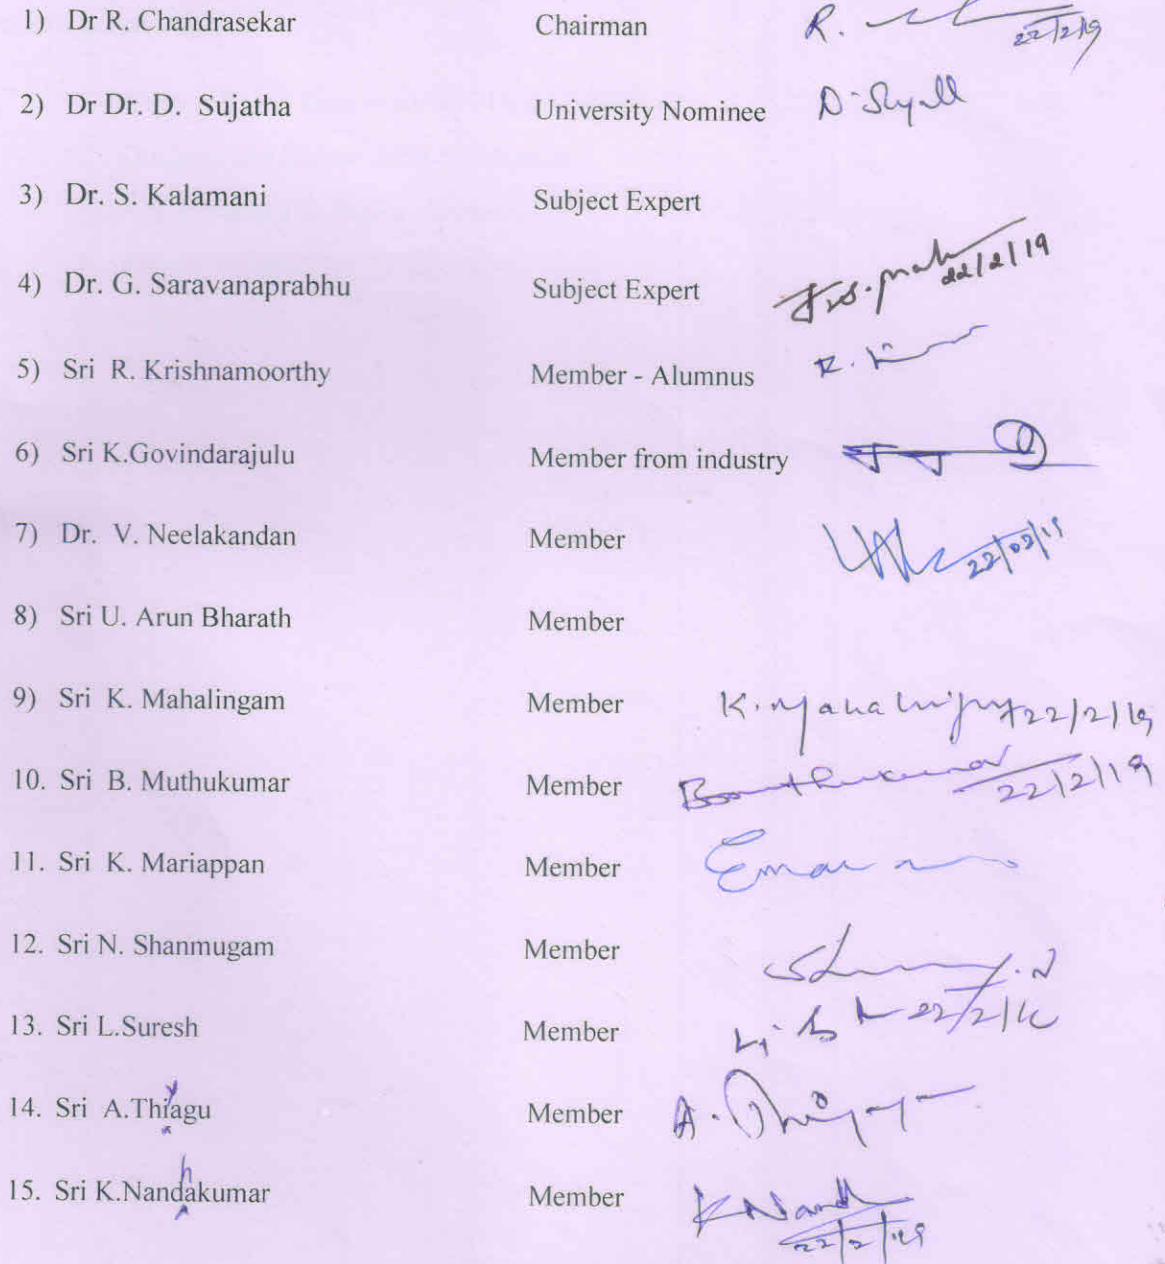 1) Dr R. Chandrasekar Chairman R. 22/2/19
2) Dr Dr. D. Sujatha University Nominee D.
3) Dr. S. Kalamani Subject Expert
4) Dr. G. Saravanaprabhu Subject Expert 22/2/19
5) Sri R. Krishnamoorthy Member - Alumnus R.
6) Sri K.Govindarajulu Member from industry
7) Dr. V. Neelakandan Member 22/02/19
8) Sri U. Arun Bharath Member
9) Sri K. Mahalingam Member K. Mahalingam 22/2/19
10. Sri B. Muthukumar Member Bmuthukumar 22/2/19
11. Sri K. Mariappan Member
12. Sri N. Shanmugam Member
13. Sri L.Suresh Member 22/2/19
14. Sri A.Thiyagu Member A.
15. Sri K.Nandhakumar Member K Nandh 22/2/19